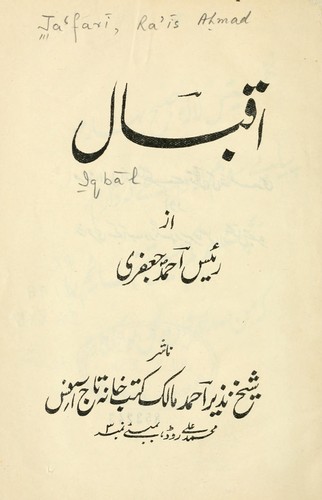 Ja'farī, Ra'īs Aḥmad
اقبال
Iqbāl
از
رئیس احمد جعفری
ناشر
شیخ نذیر احمد مالک کتب خانہ تاج آفس
محمد علی روڈ، بمبئی نمبر ۳